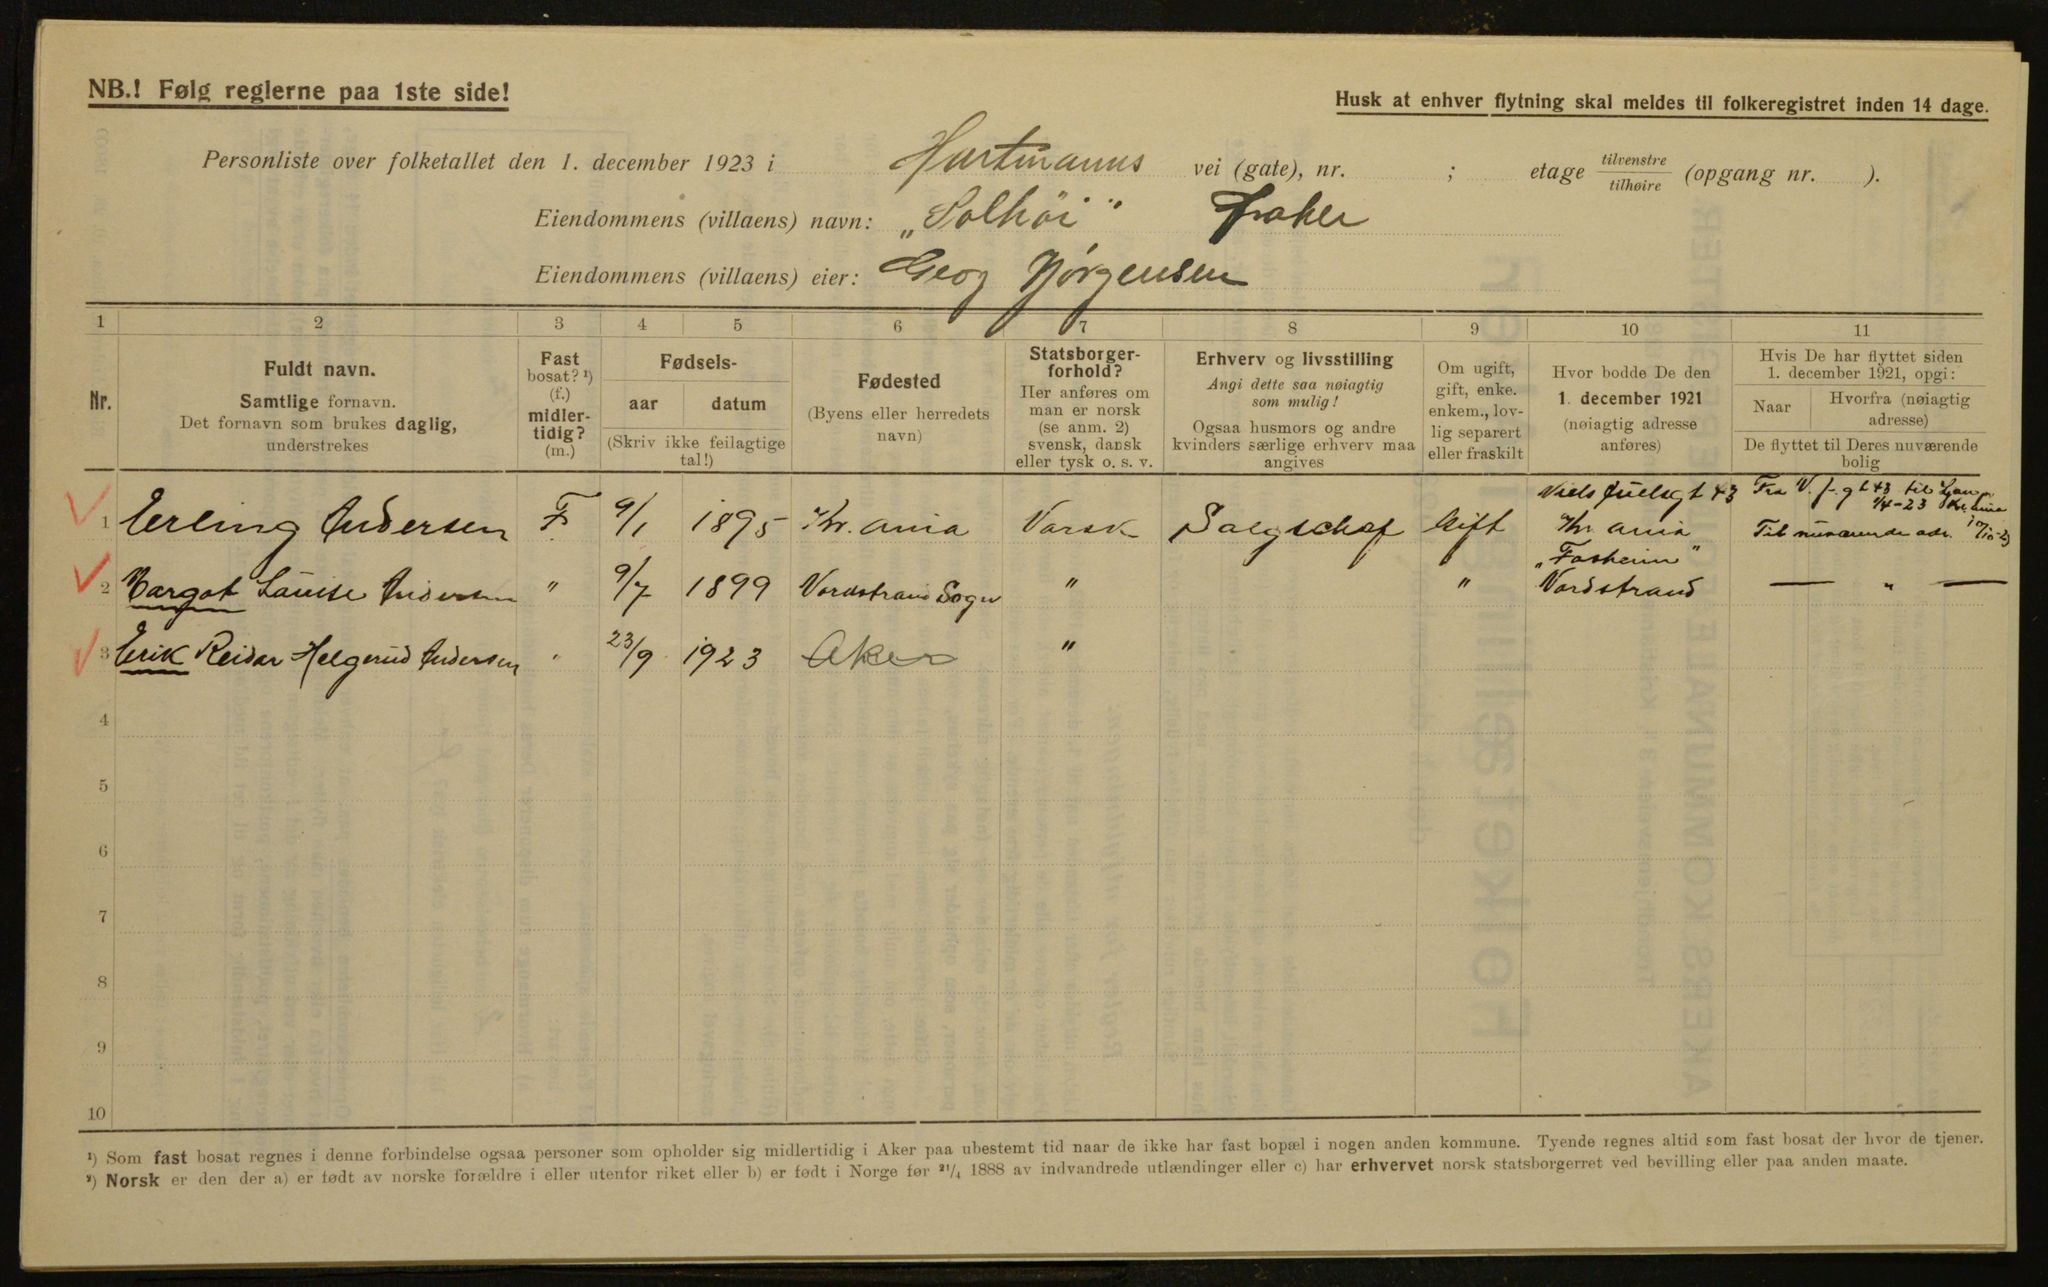 NB.! Følg reglerne paa 1ste side!
Husk at enhver flytning skal meldes til folkeregistret inden 14 dage.
Personliste over folketallet den 1. december 1923 i Hartmanns vei (gate), nr. ; etage tilvenstre/tilhøire (opgang nr. ).
Eiendommens (villaens) navn: „Solhöi" Aker
Eiendommens (villaens) eier: Georg Jørgensen
1 2 3 4 5 6 7 8 9 10 11
Nr.
Fuldt navn.
Samtlige fornavn.
Det fornavn som brukes daglig, understrekes
Fast bosat? ¹) (f.) midlertidig? (m.)
Fødsels-
aar datum
(Skriv ikke feilagtige tal!)
Fødested
(Byens eller herredets navn)
Statsborgerforhold?
Her anføres om man er norsk (se anm. 2) svensk, dansk eller tysk o. s. v.
Erhverv og livsstilling
Angi dette saa nøiagtig som mulig!
Ogsaa husmors og andre kvinders særlige erhverv maa angives
Om ugift, gift, enke. enkem., lovlig separert eller fraskilt
Hvor bodde De den 1. december 1921 (nøiagtig adresse anføres)
Hvis De har flyttet siden 1. december 1921, opgi:
Naar
Hvorfra (nøiagtig adresse)
De flyttet til Deres nuværende bolig
1 Erling Andersen F. 9/1 1895 Kr. ania Norsk Gift Niels Juelsgt 43 Kr ania Fra N. J. gt 43 til 1/4-23
Til nuværende adr.
2 Margot Louise Andersen " 9/7 1899 Nordstrand Sogn " " „Fosheim" Nordstrand — " —
3 Erik Reidar Helgerud Andersen " 23/9 1923 Aker "
4
5
6
7
8
9
10
¹) Som fast bosat regnes i denne forbindelse ogsaa personer som opholder sig midlertidig i Aker paa ubestemt tid naar de ikke har fast bopæl i nogen anden kommune. Tyende regnes altid som fast bosat der hvor de tjener.
²) Norsk er den der a) er født av norske forældre i eller utenfor riket eller b) er født i Norge før ²¹/₄ 1888 av indvandrede utlændinger eller c) har erhvervet norsk statsborgerret ved bevilling eller paa anden maate.